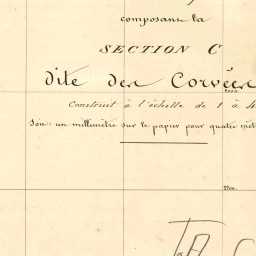 composans la
SECTION C
dite des Corvées
Construit à l'échelle de 1 à 4
Soit un millimètre sur le papier pour quatre mèt